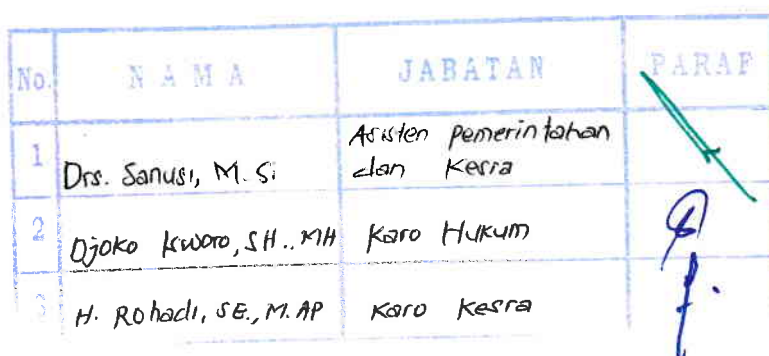 No. NAMA JABATAN PARAF
1 Drs. Sanusi, M. Si Asisten Pemerintahan
dan Kesra
2 Djoko Isworo, SH., MH Karo Hukum
3 H. Rohadi, SE., M. AP Karo Kesra